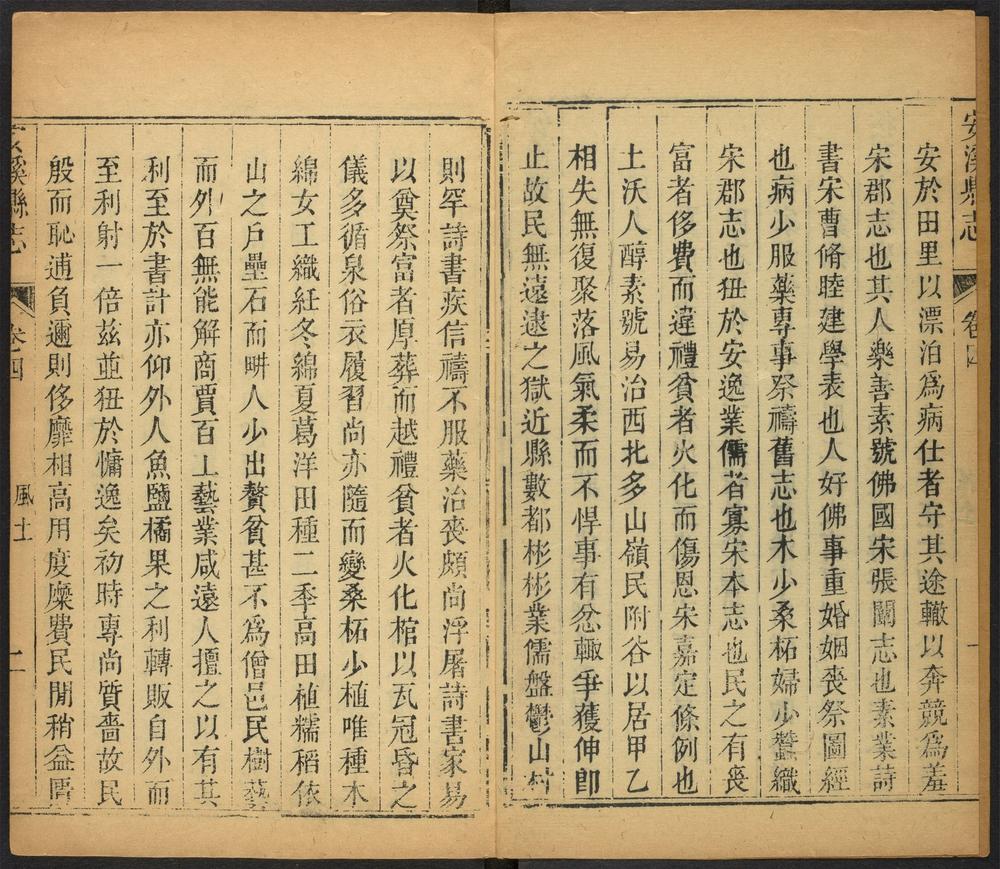 安溪縣志
卷四
一
安於田里以漂泊爲病仕者守其途轍以奔競爲羞
宋郡志也其人樂善素號佛國宋張闡志也素業詩
書宋曹脩睦建學表也人好佛事重婚姻喪祭圖經
也病少服藥專事祭禱舊志也木少桑柘婦少蠶織
宋郡志也狃於安逸業儒者寡宋本志也民之有喪
富者侈費而違禮貧者火化而傷恩宋嘉定條例也
土沃人醇素號易治西北多山嶺民附谷以居甲乙
相失無復聚落風氣柔而不悍事有忿輙爭獲伸卽
止故民無遠逮之獄近縣數都彬彬業儒盤鬱山村
則罕詩書疾信禱不服藥治喪頗尚浮屠詩書家易
以奠祭富者厚葬而越禮貧者火化棺以瓦冠昏之
儀多循泉俗衣履習尚亦隨而變桑柘少植唯種木
綿女工織紝冬綿夏葛洋田種二季高田植糯稻依
山之戶壘石而畊人少出贅貧甚不爲僧邑民樹藝
而外百無能解商賈百工藝業咸遠人擅之以有其
利至於書計亦仰外人魚鹽橘果之利轉販自外而
至利射一倍茲並狃於慵逸矣初時專尚質嗇故民
殷而恥逋負邇則侈靡相高用度糜費民閒稍益厝
安溪縣志
卷四
風土
二